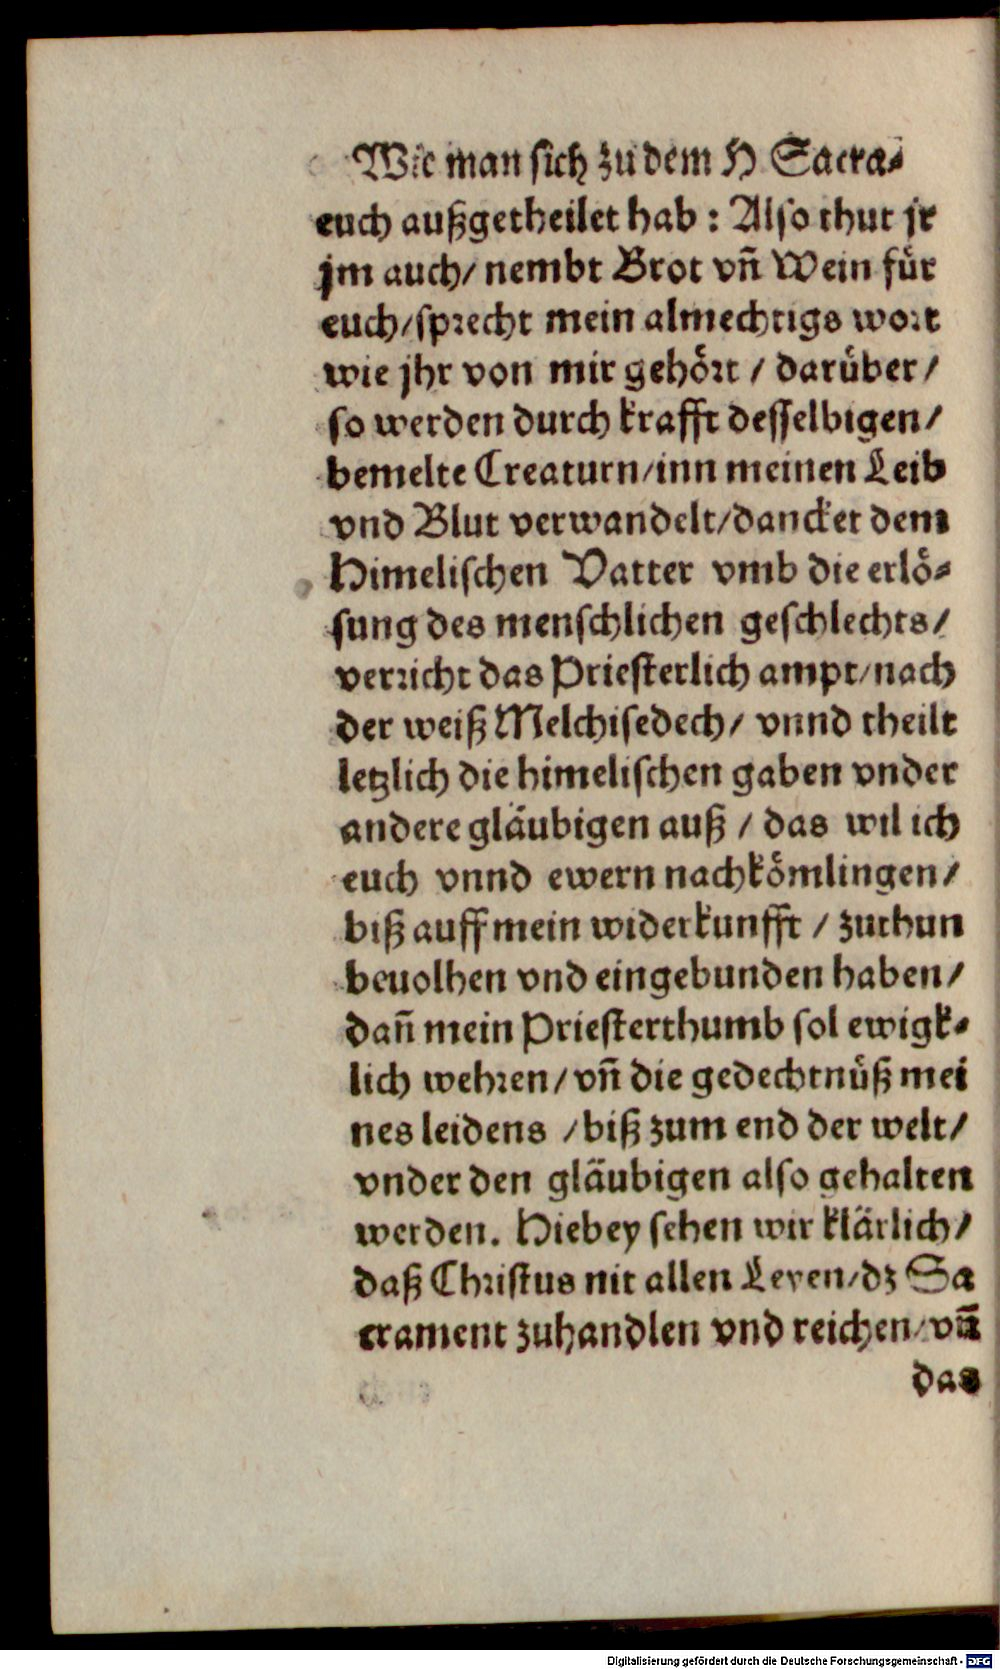 Wie man sich zu dem H Sacra-
euch außgetheilet hab : Also thut jr
jm auch/ nembt Brot vn̄ Wein für
euch/sprecht mein almechtigs wort
wie jhr von mir gehört / darüber/
so werden durch krafft desselbigen/
bemelte Creaturn/inn meinen Leib
vnd Blut verwandelt/dancket dem
Himelischen Vatter vmb die erlö-
sung des menschlichen geschlechts/
verricht das Priesterlich ampt/nach
der weiß Melchisedech/ vnnd theilt
letzlich die himelischen gaben vnder
andere gläubigen auß / das wil ich
euch vnnd ewern nachkömlingen/
biß auff mein widerkunfft / zuthun
beuolhen vnd eingebunden haben/
dan̄ mein Priesterthumb sol ewigk-
lich wehren/ vn̄ die gedechtnüß mei
nes leidens /biß zum end der welt/
vnder den gläubigen also gehalten
werden. Hiebey sehen wir klärlich/
daß Christus nit allen Leyen/dz Sa
crament zuhandlen vnd reichen/vn̄
das
Digitalisierung gefördert durch die Deutsche Forschungsgemeinschaft - DFG